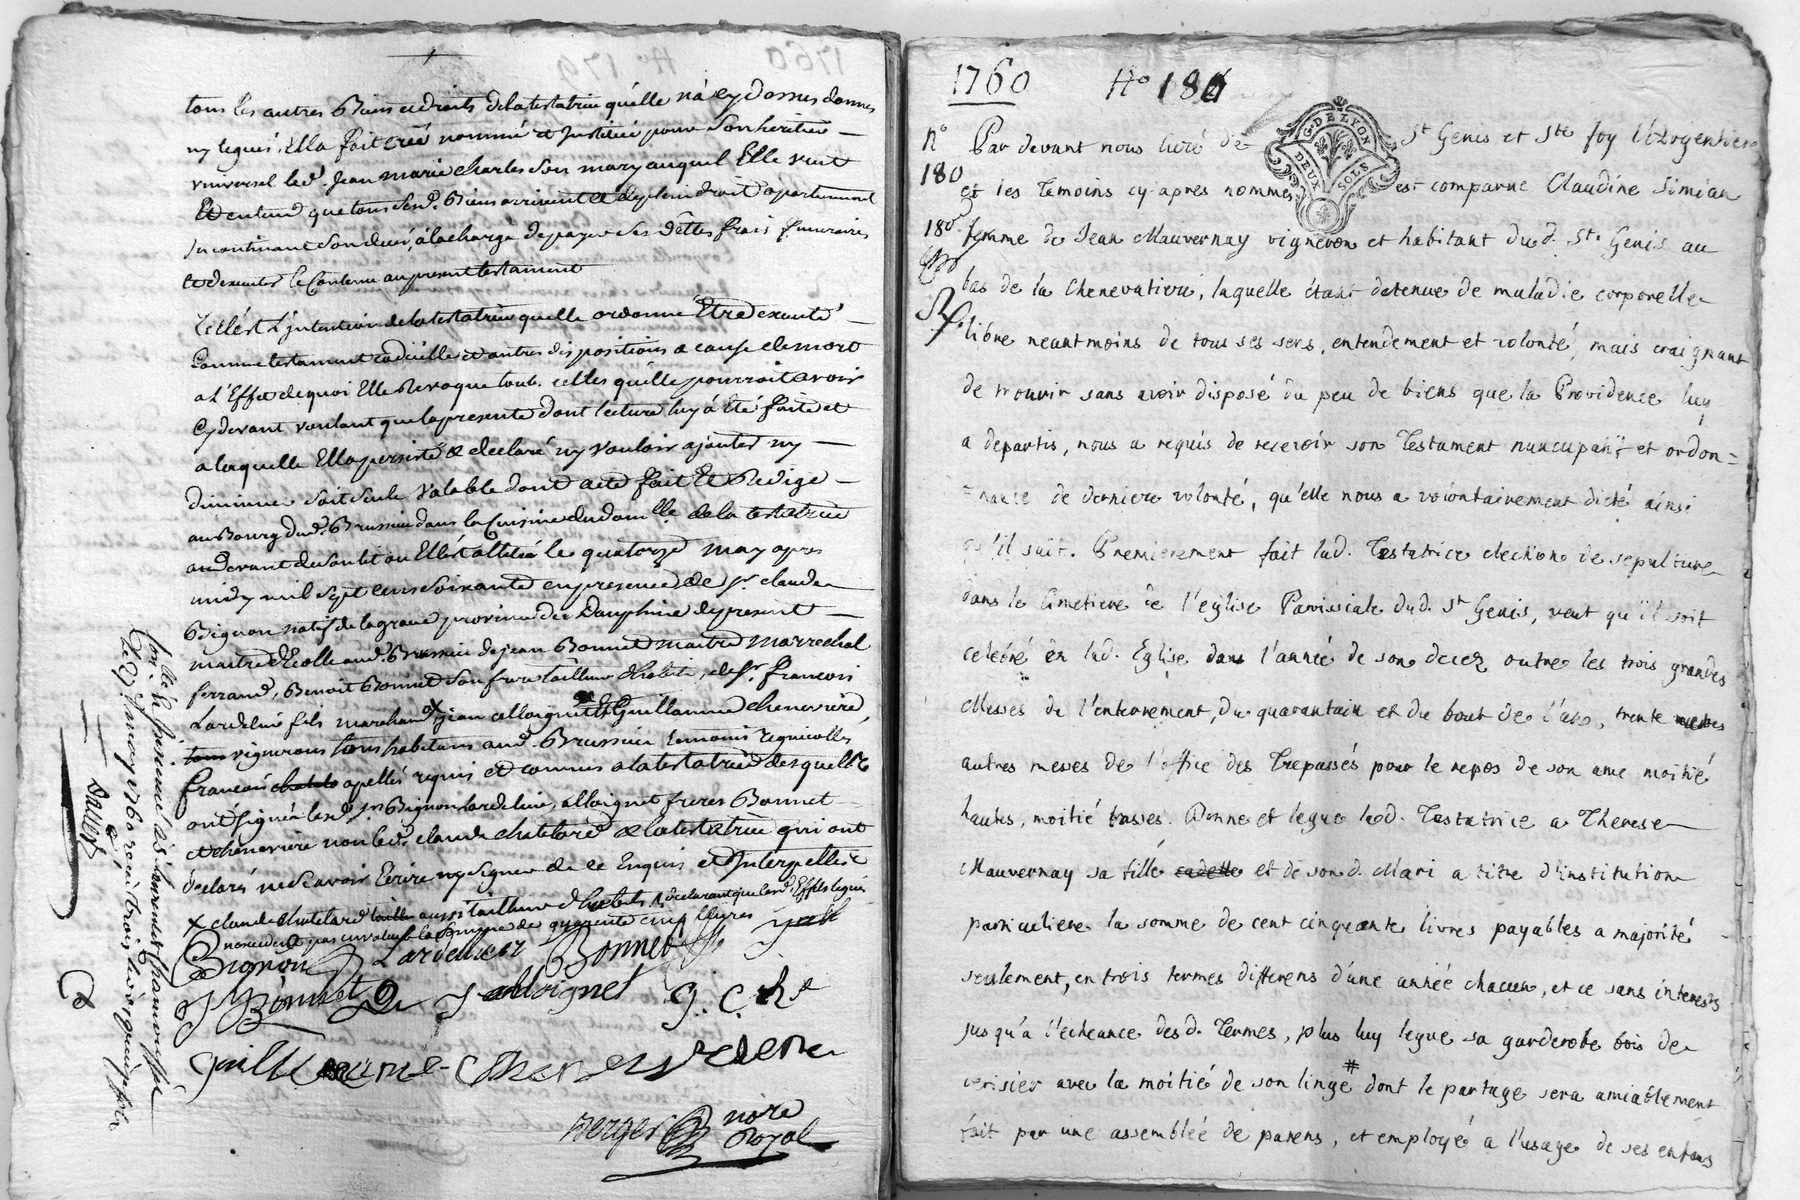 tous les autres Biens et droits de la testatrice qu'elle n'a cy dessus donnés
ny legués, Ella fait créé nommé et Institué pour Son heritier
universel led. Jean marie charles Son mary auquel Elle veut
Et entend que tous Sesd. Biens arrivent et de plein droit apartiennent
Incontinant Son decés, à la charge de payer Ses dettes frais funeraires
et d'executer le Contenu au present testament
Telle est L'intention de la testatrice quelle ordonne Etre executé
Comme testament codicille et autres dispositions a cause de mort
a L'Effet de quoi Elle Revoque toutes celles qu'elle pourroit avoir
Cy devant voulant que la presente dont lecture luy à Eté faite et
a laquelle Elle persiste & declaré ny vouloir ajouter ny
diminuer soit seule Valable dont acte fait Et Redigé
au Bourg dud. Brussieu dans la Cuisine du domlle. de la testatrice
au devant du Son lit ou Elle est allitée le quatorze may apres
midy mil Sept cens Soixante en presence de Sr. claude
Bignon natif de la grave province de Dauphiné de present
maitre d'Ecolle aud. Brussieu de jean Bonnet maitre marrechal
ferrand, Benoit Bonnet Son frere tailleur d'habits, de Sr. francois
Lardelier fils marchand x jean alloignet Et Guillaume cheneviere,
tous vignerons tous habitans aud. Brussieu temoins regnicolles
francois apellés requis et connus a la testatrice desquels
ont Signé lesd. Srs. Bignon Lardelier, alloignet freres Bonnet
et cheneviere non led. claude chatelard & la testatrice qui ont
declarés ne Scavoir Ecrire ny Signer de ce Enquis et Interpellés
x claude chatelard tailleur aussi tailleur d'habits & declarant que lesd. Effets legués
n'excedent pas en valeur la Somme de quarente cinq livres
Bignon Lardellier Bonnet
J Bonnet J alloignet g. c. h.
guillaume Chenevedere
Berger nore
Royal
Conlle. à Ste foy
Dallery
1760 No 180
No
180
180
Par devant nous curé de St Genis et Ste foy l'Argentiere
et les Temoins cy-apres nommés est comparue Claudine Simian
femme de Jean Mauvernay vigneron et habitant dud. St. Genis au
bas de la Chenevatiere, laquelle étant detenue de maladie corporelle
libre neantmoins de tous ses sens, entendement et volonté, mais craignant
de mourir sans avoir disposé du peu de biens que la Providence luy
a departis, nous a requis de recevoir son Testament nuncupatif et ordon=
=nance de derniere volonté, qu'elle nous a volontairement dicté ainsi
qu'il suit. Premierement fait lad. Testatrice election de sepulture
dans le Cimetiere de l'eglise Parrissiale dud. St Genis, veut qu'il soit
celebré en lad. Eglise dans l'année de son decez outre les trois grandes
Messes de l'enterrement, du quarantain et du bout de l'an, trente messes
autres messes de l'office des Trepassés pour le repos de son ame moitié
hautes, moitié basses. Donne et legue lad. Testatrice a Therese
Mauvernay sa fille cadette et de sond. Mari a titre d'institution
particuliere la somme de cent cinquante livres payables a majorité
seulement, en trois termes differens d'une année chacun, et ce sans interests
jusqu'a l'echeance desd. Termes, plus luy legue sa garderobe bois de
cerisier avec la moitié de son linge # dont le partage sera amiablement
fait par une assemblée de parens, et employé a l'usage de ses enfans
G. DE LYON
DEUX SOLS